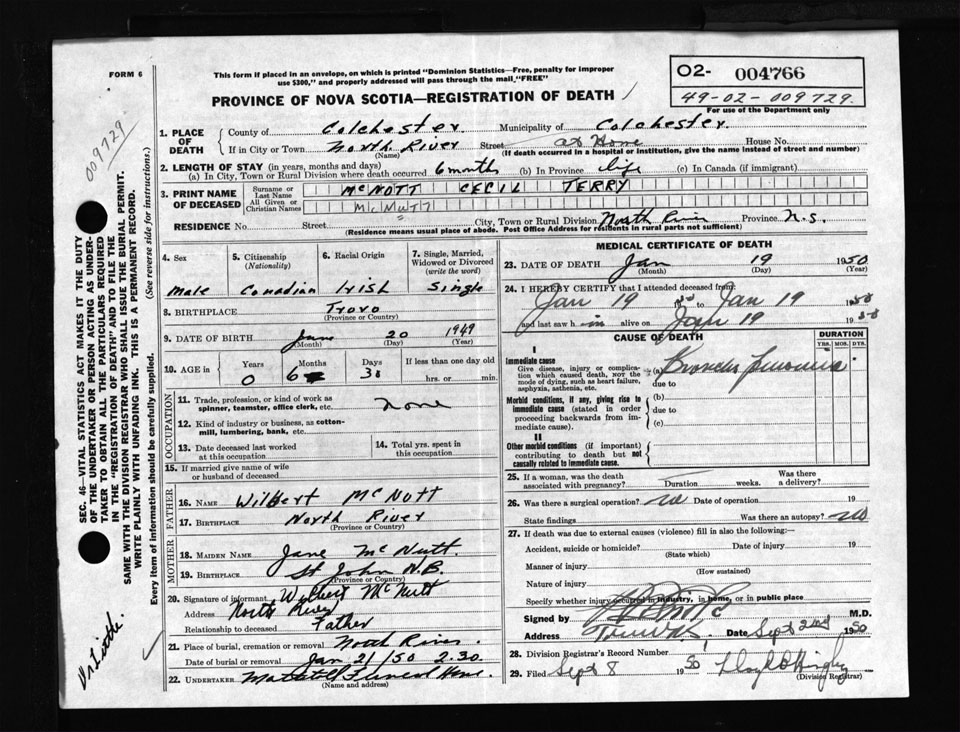 FORM 6
This form if placed in an envelope, on which is printed "Dominion Statistics—Free, penalty for improper
use $300," and properly addressed will pass through the mail, "FREE"
O2- 004766
49-02-009729.
For use of the Department only
PROVINCE OF NOVA SCOTIA—REGISTRATION OF DEATH
009729
1. PLACE OF DEATH
County of Colchester. Municipality of Colchester.
If in City or Town North River Street at Home House No.
(Name) (If death occurred in a hospital or institution, give the name instead of street and number)
2. LENGTH OF STAY (in years, months and days)
(a) In City, Town or Rural Division where death occurred 6 months (b) In Province life (c) In Canada (if immigrant)
3. PRINT NAME OF DECEASED
Surname or Last Name McNUTT CECIL TERRY
All Given or Christian Names McNUTT
RESIDENCE No. Street City, Town or Rural Division North River Province N.S.
(Residence means usual place of abode. Post Office Address for residents in rural parts not sufficient)
4. Sex
Male
5. Citizenship
(Nationality)
Canadian
6. Racial Origin
Irish
7. Single, Married,
Widowed or Divorced
(write the word)
Single
8. BIRTHPLACE Truro
(Province or Country)
9. DATE OF BIRTH June 20 1949
(Month) (Day) (Year)
10. AGE in
Years Months Days If less than one day old
0 6 30 hrs. or min.
OCCUPATION
11. Trade, profession, or kind of work as
spinner, teamster, office clerk, etc. none
12. Kind of industry or business, as cotton-
mill, lumbering, bank, etc.
13. Date deceased last worked
at this occupation
14. Total yrs. spent in
this occupation
15. If married give name of wife
or husband of deceased
FATHER
16. NAME Wilbert McNutt
17. BIRTHPLACE North River
(Province or Country)
MOTHER
18. MAIDEN NAME Jane McNutt.
19. BIRTHPLACE St John N.B.
(Province or Country)
20. Signature of informant Wilbert McNutt
Address North River
Relationship to deceased Father
21. Place of burial, cremation or removal North River.
Date of burial or removal Jan 21/50 2.30.
22. UNDERTAKER Funeral Home.
(Name and address)
MEDICAL CERTIFICATE OF DEATH
23. DATE OF DEATH Jan 19 1950
(Month) (Day) (Year)
24. I HEREBY CERTIFY that I attended deceased from:
Jan 19 50 to Jan 19 1950
and last saw h im alive on Jan 19 1950
CAUSE OF DEATH
DURATION
YRS. MOS. DYS.
I
Immediate cause
Give disease, injury or complica-
tion which caused death, not the
mode of dying, such as heart failure,
asphyxia, asthenia, etc.
(a) Broncho pneumonia
due to
Morbid conditions, if any, giving rise to
immediate cause (stated in order
proceeding backwards from im-
mediate cause).
(b)
due to
(c)
II
Other morbid conditions (if important)
contributing to death but not
causally related to immediate cause.
25. If a woman, was the death
associated with pregnancy? Duration weeks. Was there
a delivery?
26. Was there a surgical operation? no Date of operation 19
State findings Was there an autopsy? no
27. If death was due to external causes (violence) fill in also the following:-
Accident, suicide or homicide? Date of injury 19
(State which)
Manner of injury
(How sustained)
Nature of injury
Specify whether injury occurred in industry, in home, or in public place
Signed by M.D.
Address Truro N.S. Date Sept 2nd 1950
28. Division Registrar's Record Number
29. Filed Sept 8 1950
(Division Registrar)
SEC. 46—VITAL STATISTICS ACT MAKES IT THE DUTY
OF THE UNDERTAKER OR PERSON ACTING AS UNDER-
TAKER TO OBTAIN ALL THE PARTICULARS REQUIRED
IN THE "REGISTRATION OF DEATH" AND TO FILE THE
SAME WITH THE DIVISION REGISTRAR WHO SHALL ISSUE THE BURIAL PERMIT.
WRITE PLAINLY WITH UNFADING INK. THIS IS A PERMANENT RECORD.
Every item of information should be carefully supplied. (See reverse side for instructions.)